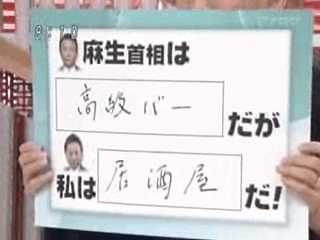 麻生首相は
高級バー
だが
私は
居酒屋
だ!